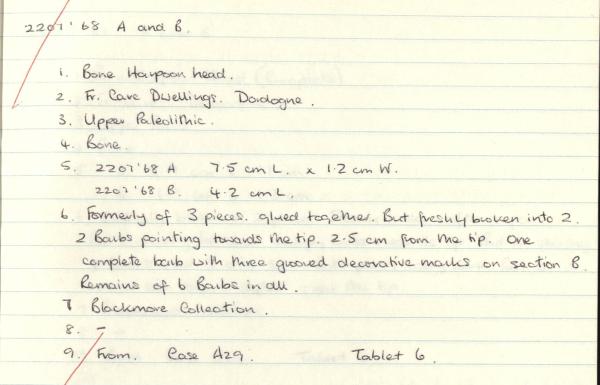 2207'68 A and B.
1. Bone Harpoon head.
2. Fr. Cave Dwellings. Dordogne.
3. Upper Paleolithic.
4. Bone.
5. 2207'68 A 7.5 cm L. x 1.2 cm W.
2207'68 B. 4.2 cm L.
6. Formerly of 3 pieces. glued together. But freshly broken into 2.
2 Barbs pointing towards the tip. 2.5 cm from the tip. One
complete barb with three grooved decorative marks on section B.
Remains of 6 Barbs in all.
7 Blackmore Collection.
8. -
9. From. Case A29. Tablet 6.